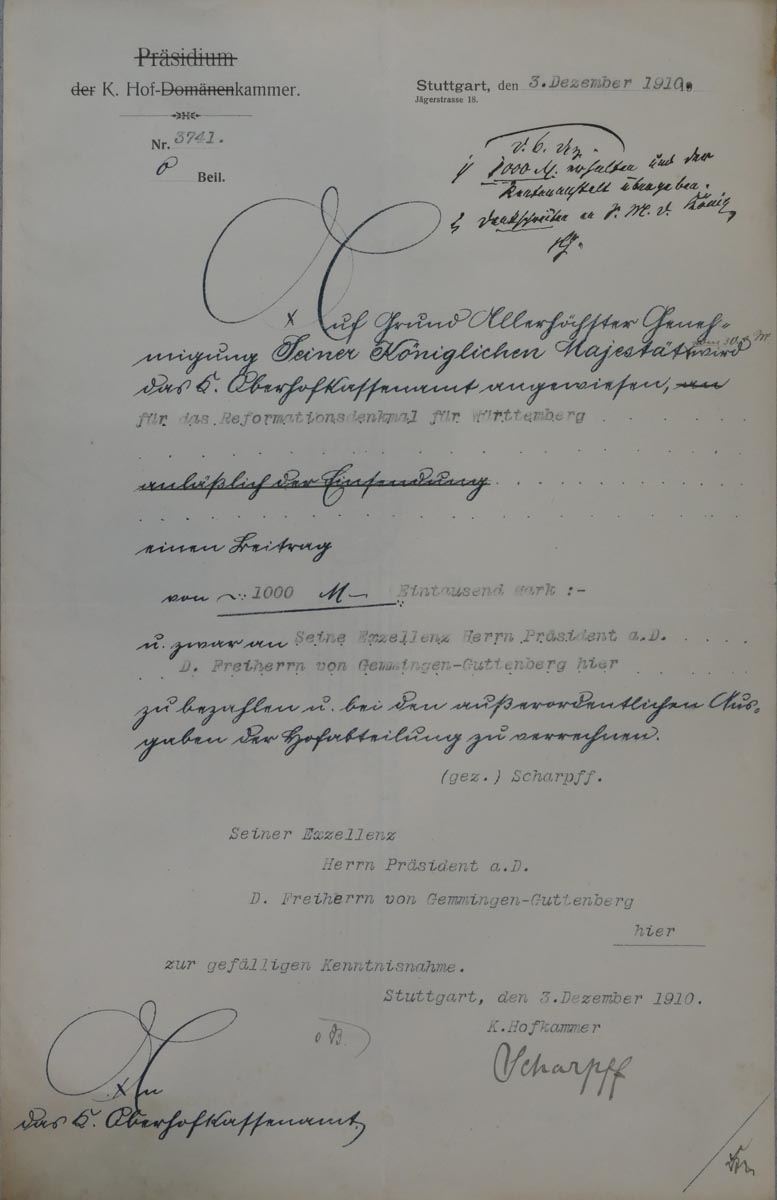 Präsidium
der K. Hof-Domänenkammer.
Stuttgart, den 3. Dezember 1910.
Jägerstrasse 18.
Nr. 3741.
0 Beil.
1000 M. erhalten und der
Rentenanstalt übergeben.
Dankschreiben an S. M. d. König
Auf Grund Allerhöchster Geneh-
migung Seiner Königlichen Majestät vom wird
das K. Oberhofkassenamt angewiesen, an
für das Reformationsdenkmal für Württemberg
anläßlich der Einsendung
einen Beitrag
von 1000 M Eintausend Mark :-
u. zwar an Seine Exzellenz Herrn Präsident a.D.
D. Freiherrn von Gemmingen-Guttenberg hier
zu bezahlen u. bei den außerordentlichen Aus-
gaben der Hofabteilung zu verrechnen.
(gez.) Scharpff.
Seiner Exzellenz
Herrn Präsident a.D.
D. Freiherrn von Gemmingen-Guttenberg
hier
zur gefälligen Kenntnisnahme.
Stuttgart, den 3.Dezember 1910.
K.Hofkammer
Scharpff
An
das K. Oberhofkassenamt.